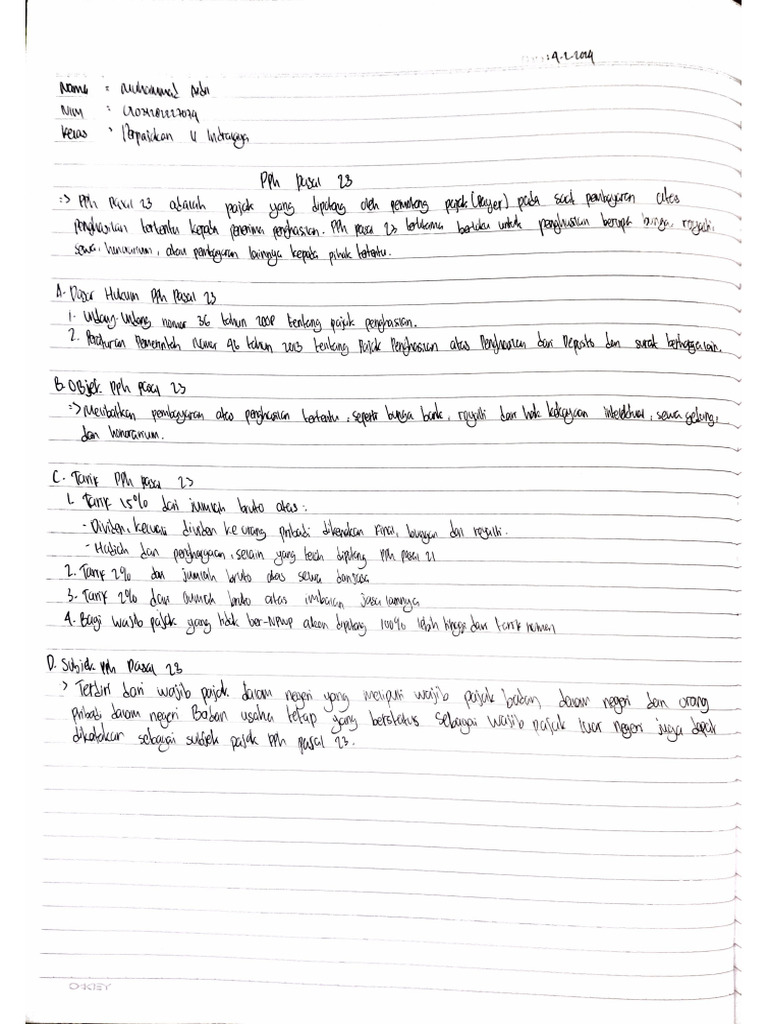 4-2-2024
Nama : Muhammad
NIM :
Kelas : Perpajakan Indralaya
PPh Pasal 23
=> PPh Pasal 23 adalah pajak yang dipotong oleh pemotong pajak (Payer) pada saat pembayaran atas
penghasilan tertentu kepada penerima penghasilan. PPh pasal 23 terutama berlaku untuk penghasilan berupa bunga, royalti,
sewa, honorarium, atau pembayaran lainnya kepada pihak tertentu.
A. Dasar Hukum PPh Pasal 23
1. Undang-Undang nomor 36 tahun 2008 tentang pajak penghasilan.
2. Peraturan Pemerintah Nomor 46 tahun 2013 tentang Pajak Penghasilan atas Penghasilan dari Deposito dan surat berharga lain.
B. Objek PPh pasal 23
=> Melibatkan pembayaran atas penghasilan tertentu, seperti bunga bank, royalti dari hak kekayaan intelektual, sewa gedung,
dan honorarium.
C. Tarif PPh pasal 23
1. Tarif 15% dari jumlah bruto atas :
- Dividen, kecuali dividen ke orang pribadi dikenakan final, bunga dan royalti.
- Hadiah dan penghargaan, selain yang telah dipotong PPh pasal 21
2. Tarif 2% dari jumlah bruto atas sewa dan jasa
3. Tarif 2% dari jumlah bruto atas imbalan jasa lainnya
4. Bagi wajib pajak yang tidak ber-NPWP akan dipotong 100% lebih tinggi dari tarif normal
D. Subjek PPh Pasal 23
> Terdiri dari wajib pajak dalam negeri yang meliputi wajib pajak badan dalam negeri dan orang
pribadi dalam negeri Badan usaha tetap yang berstatus sebagai wajib pajak luar negeri juga dapat
dikatakan sebagai subjek pajak PPh pasal 23.